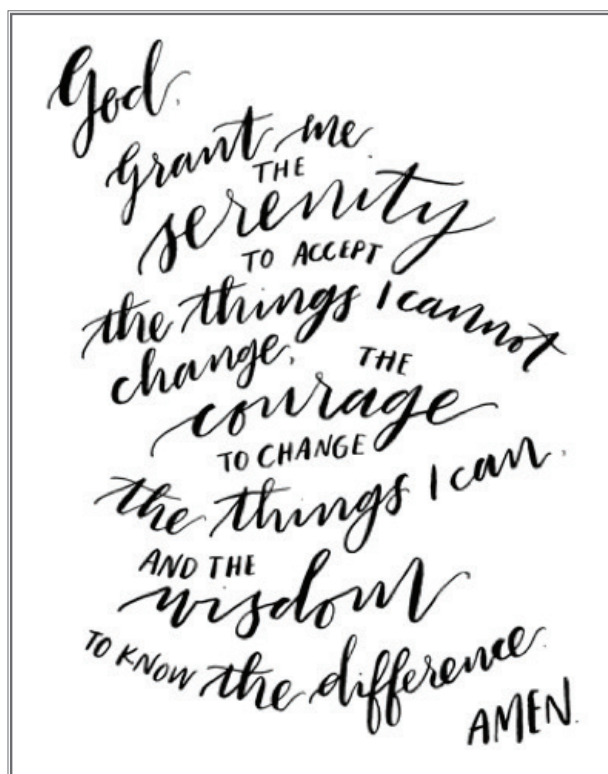 God,
Grant me
THE
serenity
TO ACCEPT
the things I cannot
change,
THE
courage
TO CHANGE
the things I can,
AND THE
wisdom
TO KNOW the difference.
AMEN.